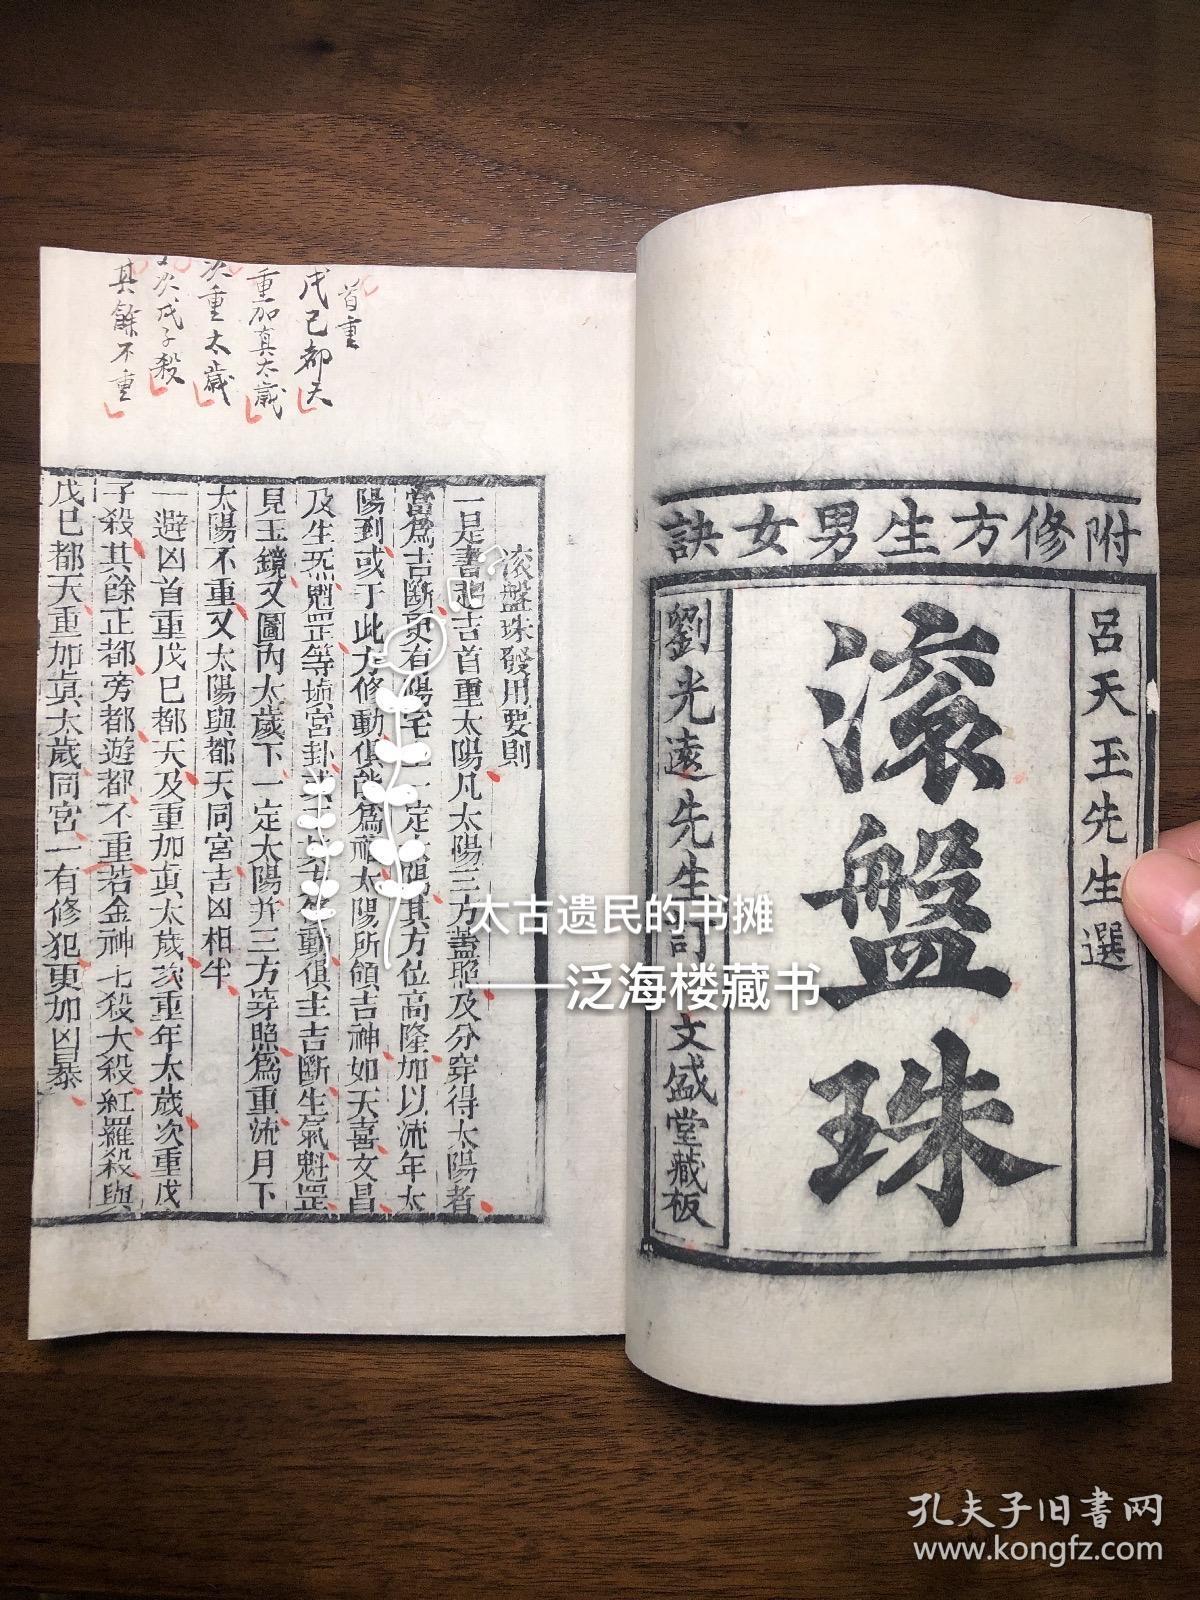 附修方生男女訣
呂天玉先生選
滾盤珠
劉光遠先生訂
文盛堂藏板
首重
戊己都天
重加真太歲
次重太歲
次戊子殺
其餘不重
滚盤珠發用要則
一是書趨吉首重太陽凡太陽三方蓋照及分穿得太陽者
當為吉斷更有陽宅一定太陽其方位高隆加以流年太
陽到或于此方修動俱能為福太陽所領吉神如天喜文昌
及生炁魁罡等填宮卦其方修動俱主吉斷生氣魁罡
見玉鏡又圖內太歲下一定太陽并三方穿照為重流月下
太陽不重又太陽與都天同宮吉凶相半
一避凶首重戊巳都天及重加真太歲次重年太歲次重戊
子殺其餘正都旁都遊都不重若金神七殺大殺紅羅殺與
戊巳都天重加真太歲同宮一有修犯更加凶暴
太古遗民的书摊
——泛海楼藏书
孔夫子旧书网
www.kongfz.com